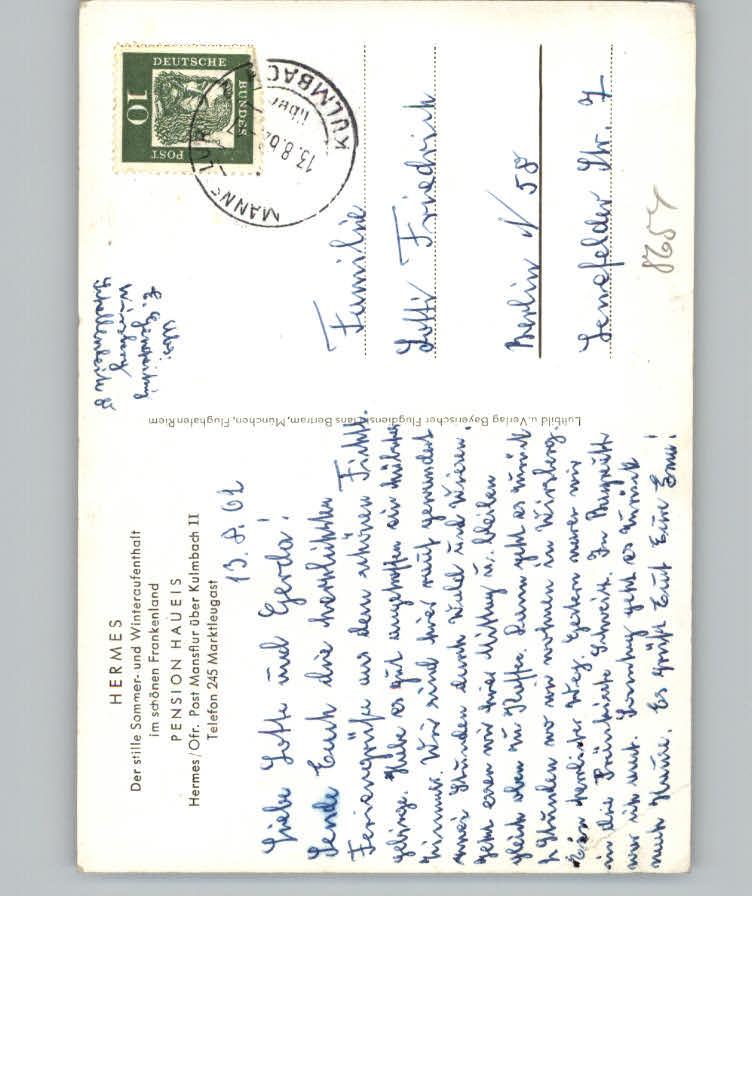 HERMES
Der stille Sommer- und Winteraufenthalt
im schönen Frankenland
PENSION HAUEIS
Hermes/Ofr. Post Mansflur über Kulmbach II
Telefon 245 Marktleugast
13. 8. 62
Liebe Lotte und Gerda!
Sende Euch die herzlichsten
Feriengrüße aus dem schönen
gebirge. Habe es gut angetroffen ein hübsches
Zimmer. Wir sind hier
zwei Stunden durch Wald und Wiesen.
Jetzt essen wir hier Mittag u. bleiben
gleich oben zu Kaffee. Dann geht es zurück
2 Stunden wo wir wohnen in Wirsberg
Ein herrlicher Weg. Gestern waren wir
in die Fränkische Schweiz. In Bayreuth
war ich auch. Sonntag geht es zurück
nach Hause. Es grüßt Euch Eure Erna!
Luftbild u. Verlag Bayerischer Flugdienst Hans Bertram, München, Flughafen Riem
Abs.
Wirsberg
DEUTSCHE
BUNDES
POST
10
MANNSFLUR
über
KULMBACH
13.8.62
Familie
Lotte Friedrich
Berlin N 58
Senefelder Str. 7
8657